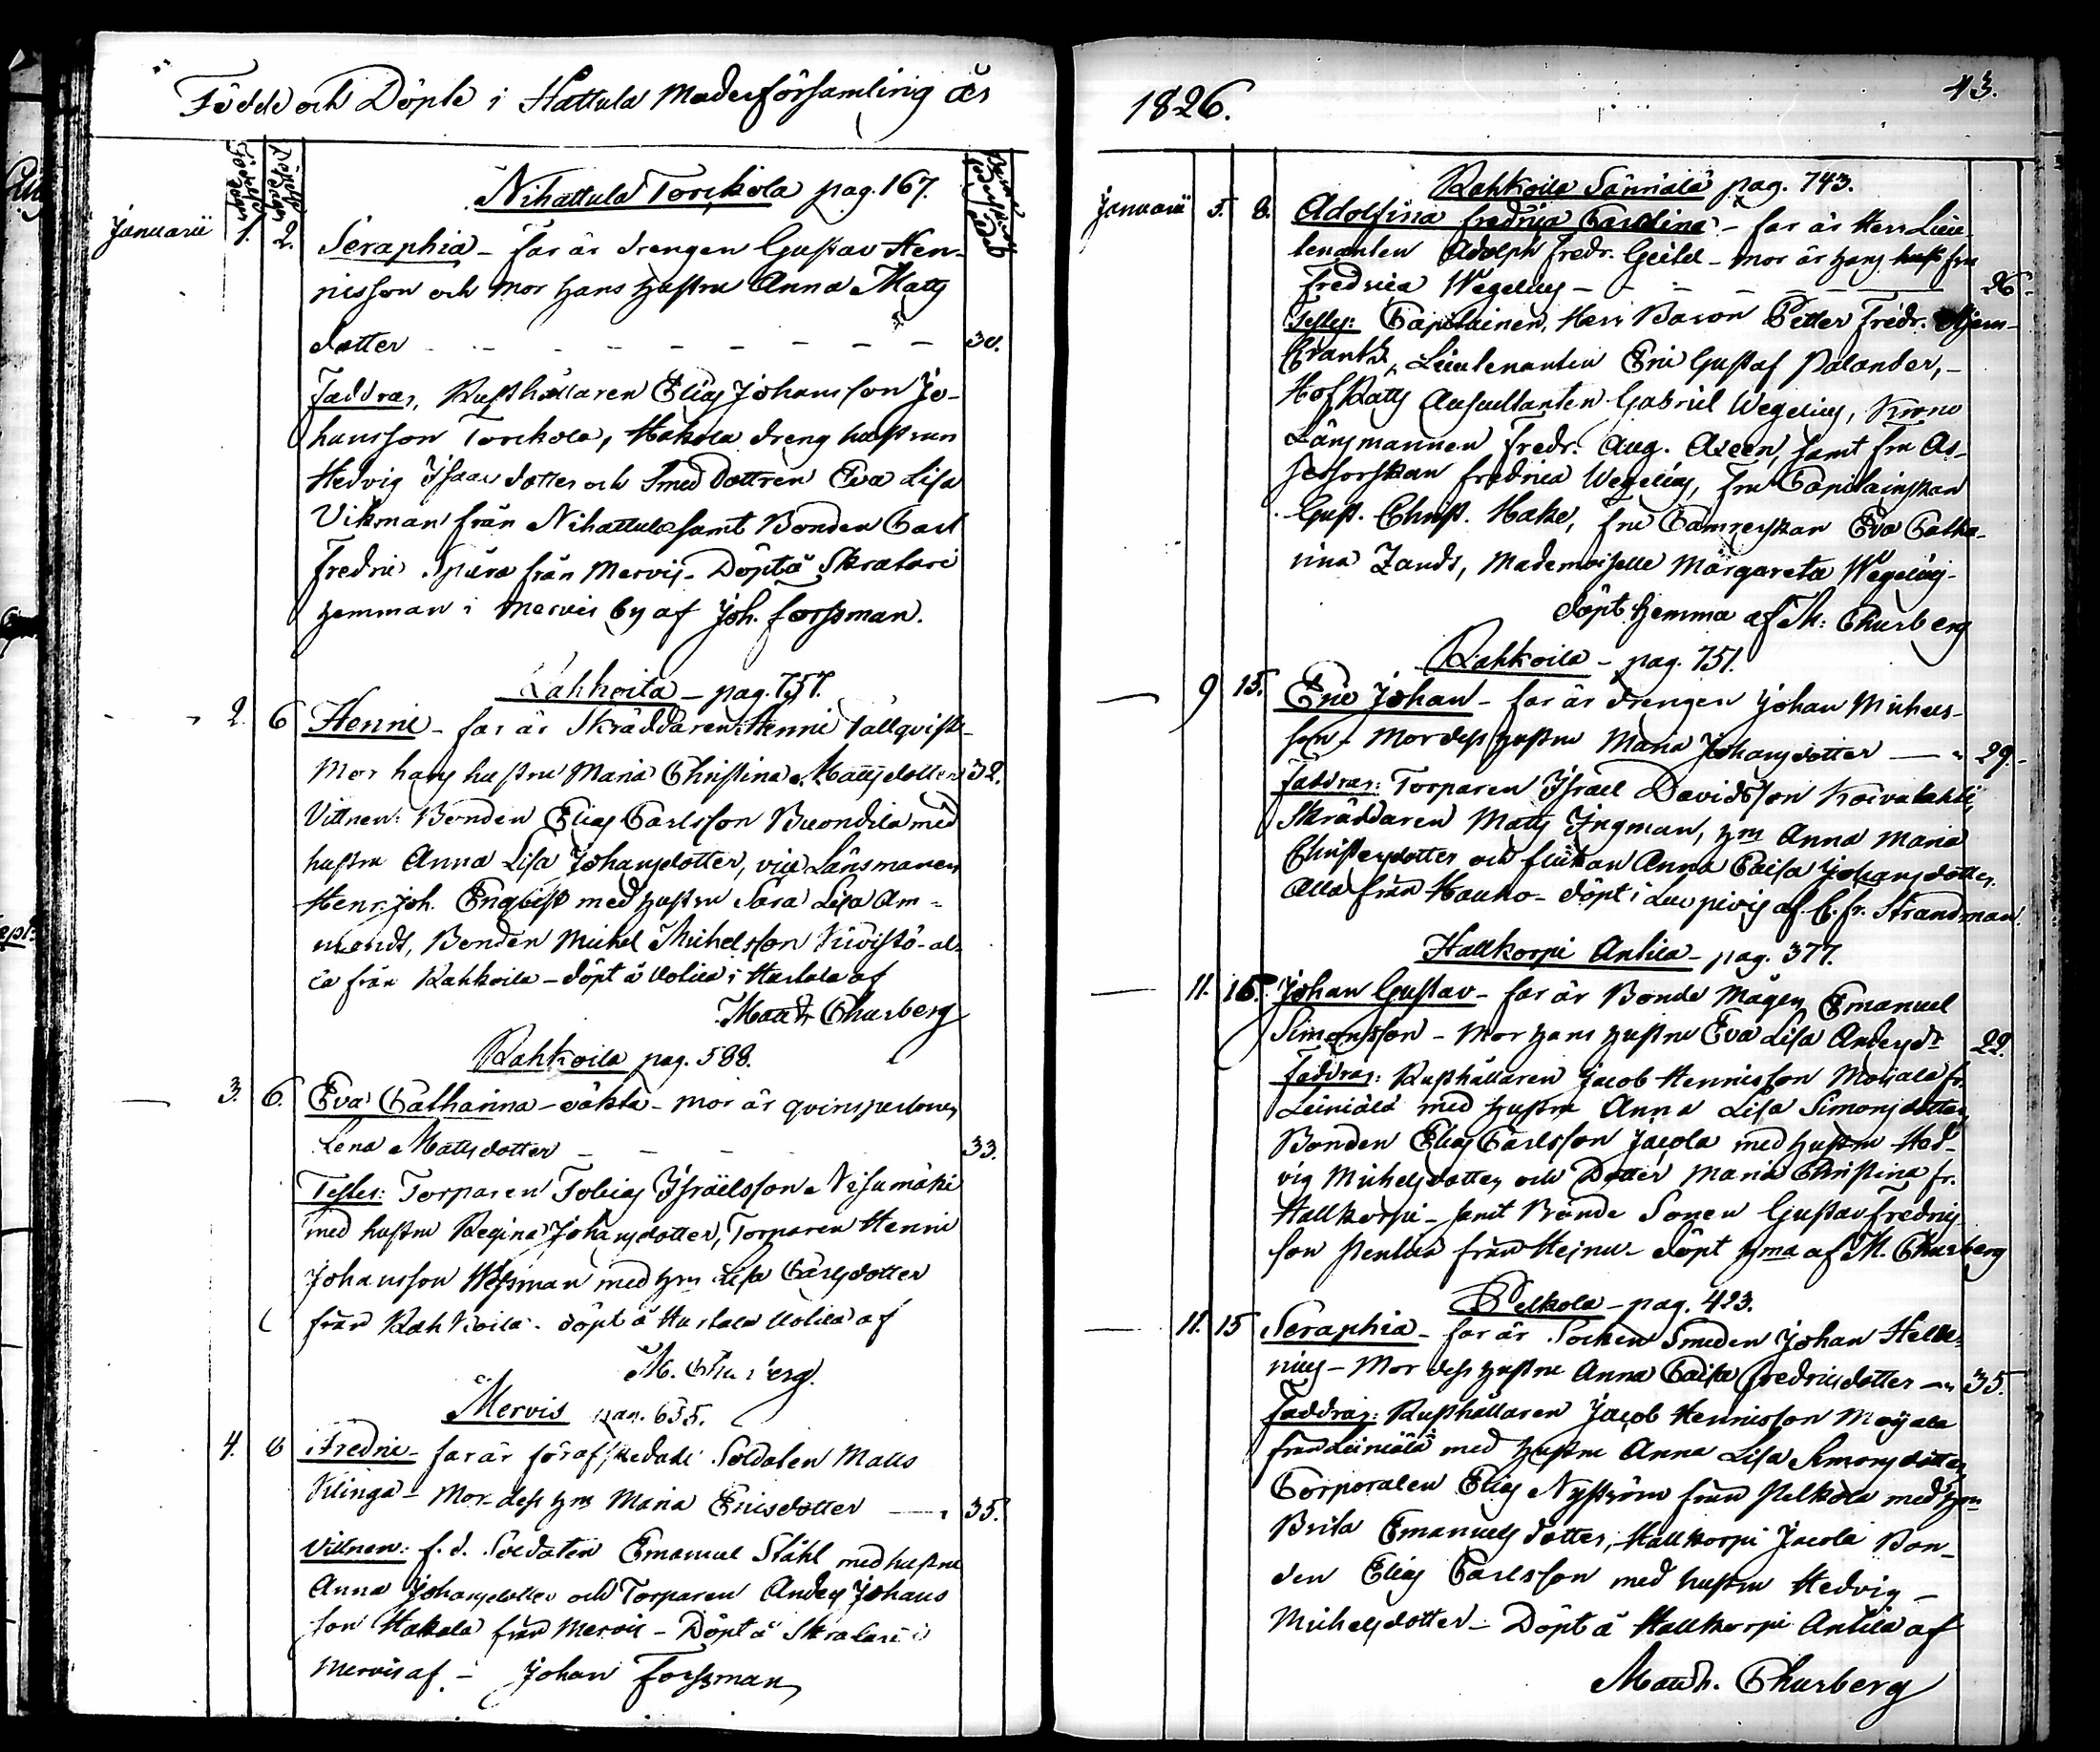 Födde och Döpte i Hattula Moderförsamling år
Födelse dagar
Döpelse dagar
Nihattula Torckola pag. 167.
Januarii 1. 2. Seraphia - far är drengen Gustav Hen-
ricsson och mor hans hustru Anna Matts
dotter - - - - - - - - 30.
Faddrar, Rusthållaren Elias Johansson Jo-
hansson Torckola, Hakola dreng hustrun
Hedvig Isaacs dotter och Smed Dottren Eva Lisa
Vikman från Nihattula samt Bonden Carl
Fredric från Mervis - Döpt å Skralari
hemman i Mervis by af Joh. Forssman.
Rahkoila - pag. 757.
2. 6 Henric - far är Skräddaren Henric Tallqvist -
Mor hans hustru Maria Christina Mattsdotter 32.
Vittnen: Bonden Elias Carlsson med
hustru Anna Lisa Johansdotter, vice Länsmannen
Henr. Joh. Enqvist med hustru Sara Lisa Am-
mondt, Bonden Michel Michelsson al-
la från Rahkoila - döpt å i af
Matth. Churberg
Rahkoila pag. 588.
3. 6. Eva Catharina - oäkta - Mor är qvinspersonen
Lena Mattsdotter - - - 33.
Testes: Torparen Tobias Israelsson
med hustru Regina Johansdotter, Torparen Henric
Johansson med hru Lisa Carlsdotter
från Rahkoila - döpt å af
M. Churberg.
Mervis pag. 655.
4. 8 Fredric - far är för afskedade Soldaten Matts
Klinga - Mor - dess hru Maria Ericsdotter — 35.
Vittnen: f. d. Soldaten Emanuel Ståhl med hustru
Anna Johansdotter och Torparen Anders Johans
son Hakala från Mervis - Döpt å Skralari i
Mervis af - Johan Forssman
1826.
43.
Rahkoila Sänniälä pag. 743.
Januarii 5. 8. Adolfina Fredrica Carolina - far är Herr Lieu-
tenanten Adolph Fredr. Geitel - Mor är hans fru
Fredrica Wegelius - - - - - - 26.
Testes: Capitainen, Herr Baron Petter Fredr. Stjern-
Crantz, Lieutenanten Eric Gustaf Palander, -
HofRatts Auscultanten Gabriel Wegelius, Krono
Länsmannen Fredr. Aug. Aseen, samt fru As-
sessorskan Fredrica Wegelius, Fru Capitainskan
Gust. Christ. Hake, fru Camrerskan Eva Catha-
rina Zands, Mademoiselle Margareta Wegelius -
döpt hemma af M: Churberg
Rahkoila - pag. 751.
— 9 15. Eric Johan - far är drengen Johan Michels-
son - Mor dess hustru Maria Johansdotter — 29.
Faddrar: Torparen Israel Davidsson Koivulahti,
Skräddaren Matts Ingman, hru Anna Maria
Christersdotter och flickan Anna Caisa Johansdotter
Alla från Hauho - döpt i af C. Fr. Strandman.
Hallkorpi Antila - pag. 377.
— 11. 15. Johan Gustav - far är Bonde Mågen Emanuel
Simonsson - Mor hans hustru Eva Lisa Andersdr 22.
Faddrar: Rusthållaren Jacob Henricsson Moijala fr.
Leiniälä med hustru Anna Lisa Simonsdotter,
Bonden Elias Carlsson Jacola med hustru Hed-
vig Michelsdotter och Dotter Maria Christina fr.
Hallkorpi - samt Bonde Sonen Gustav Fredrics
son Pentila från Heinu - döpt hma af M. Churberg
Pelkola - pag. 423.
— 11. 15 Seraphia - far är Socken Smeden Johan Hele-
nius - Mor dess hustru Anna Caisa Fredricsdotter — 35.
Faddrar: Rusthållaren Jacob Henricsson Moijala
från Leiniälä med hustru Anna Lisa Simonsdotter
Corporalen Elias Nyström från Pelkola med hru
Brita Emanuels dotter, Hallkorpi Jacola Bon-
den Elias Carlsson med hustru Hedvig -
Michelsdotter - Döpt å Hallkorpi Antila af
Matth. Churberg